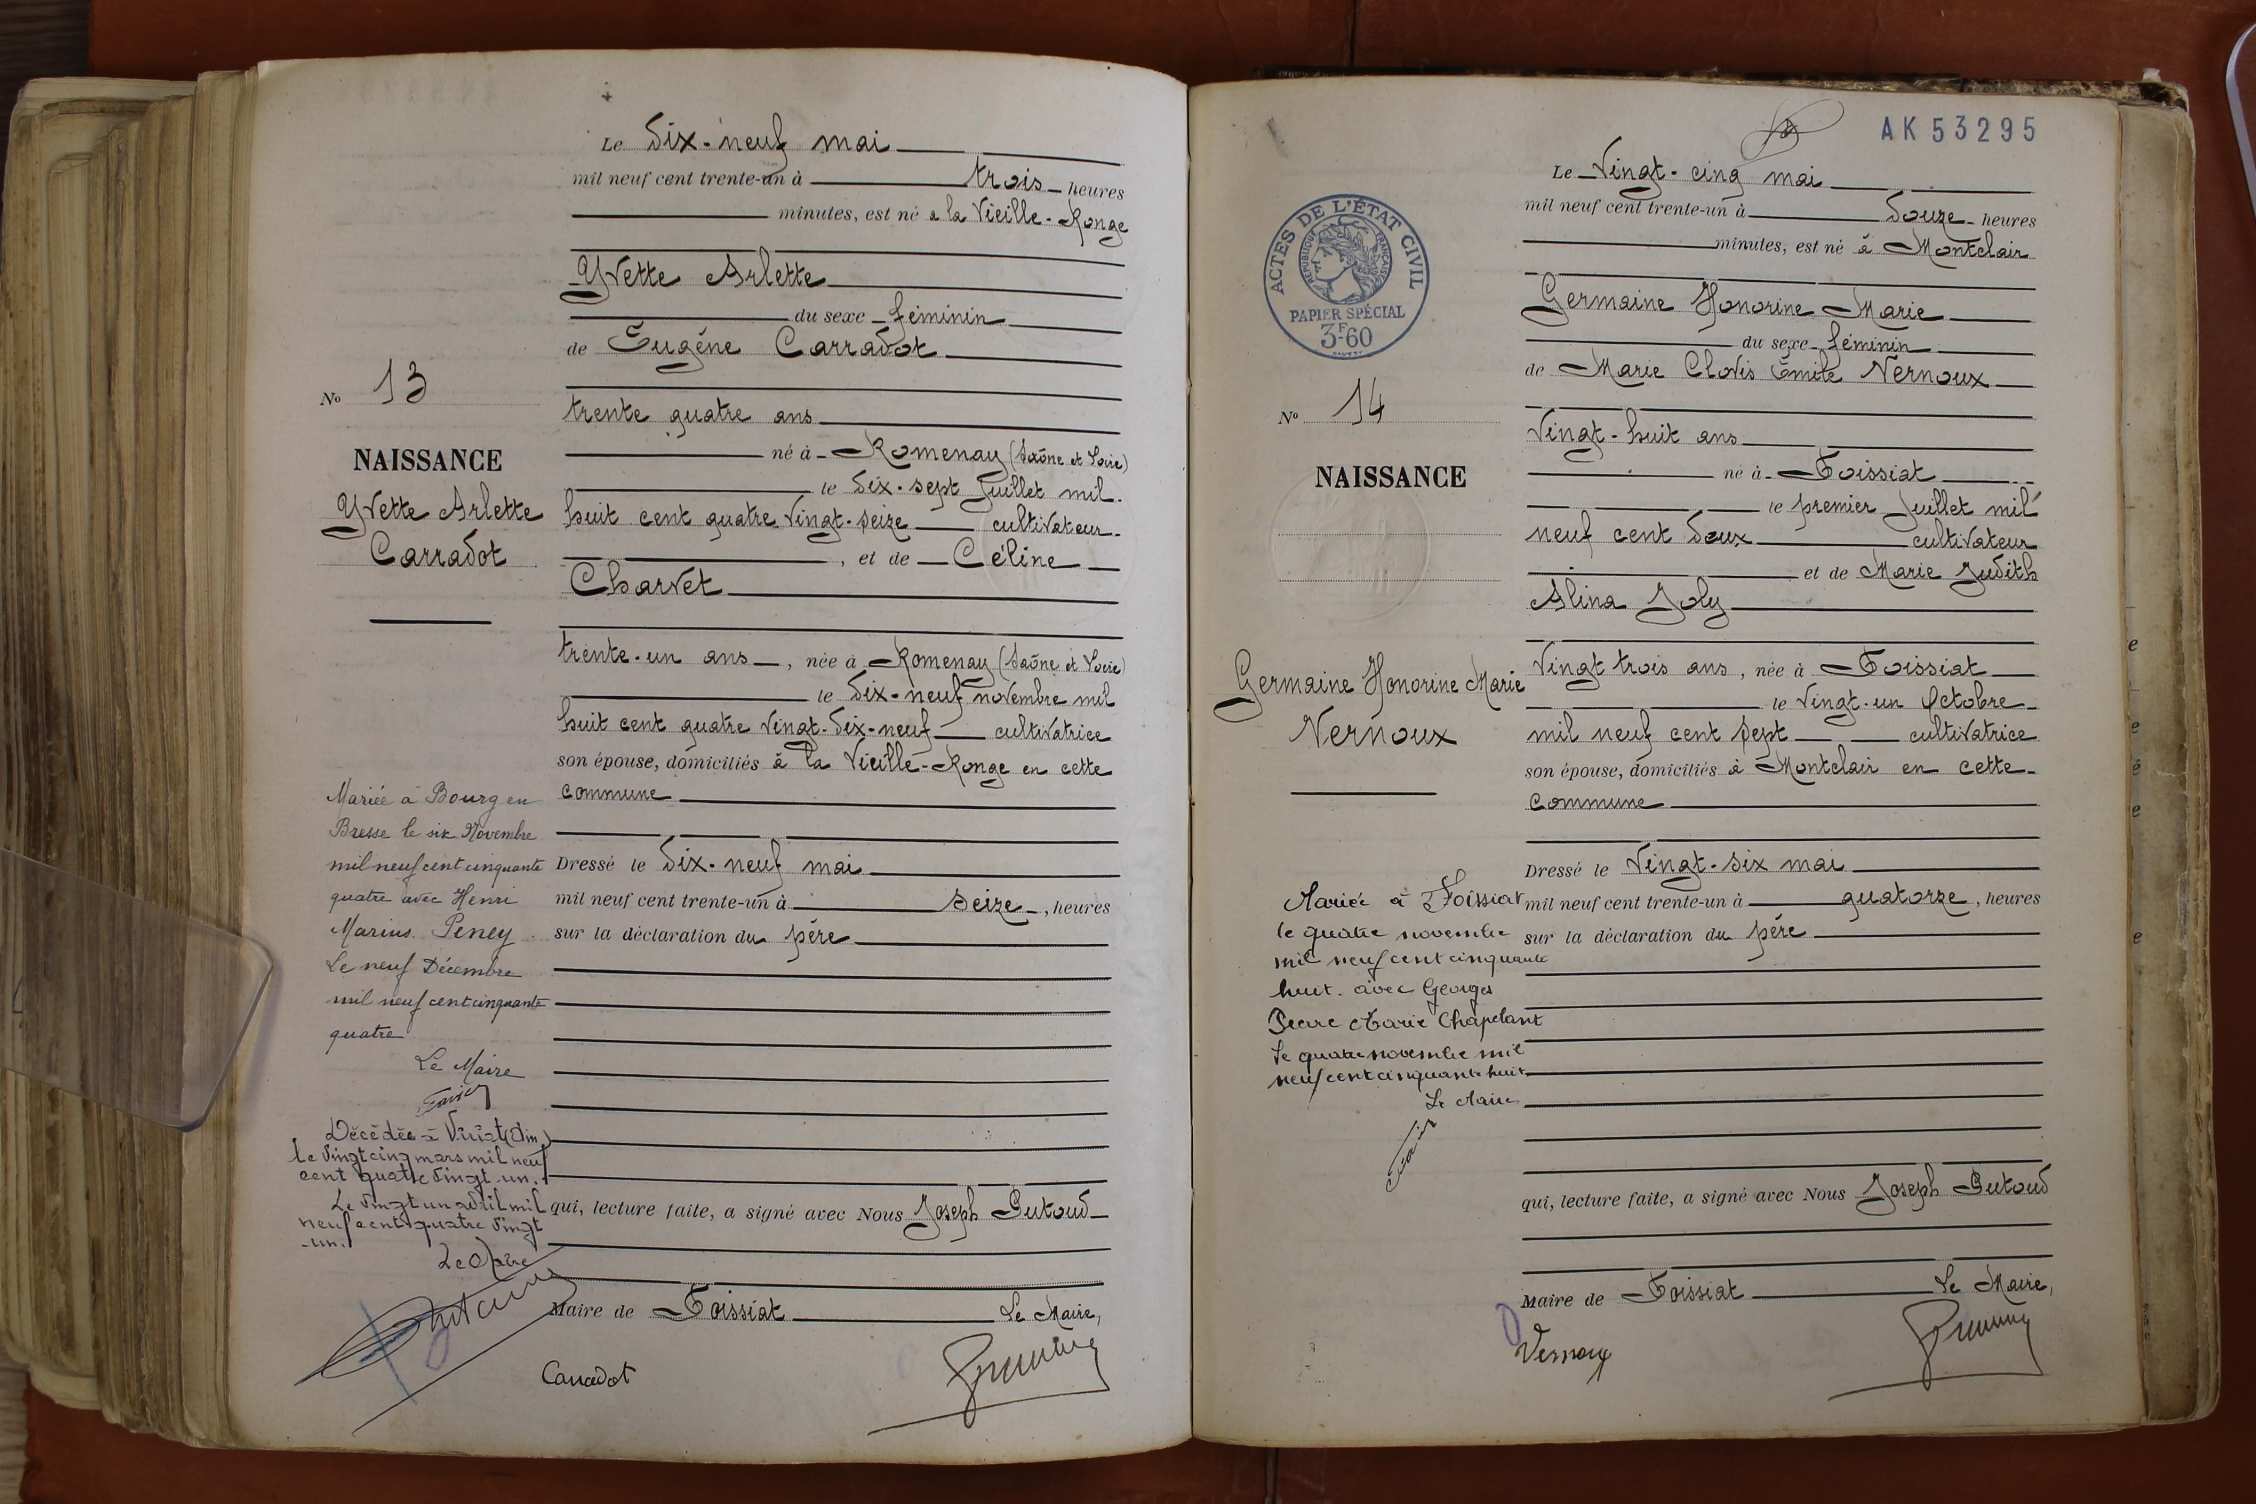 Le Dix-neuf mai
mil neuf cent trente-un à trois heures
minutes, est né à la Vieille-Ronge
Yvette Arlette
du sexe féminin
de Eugène Carradot
trente quatre ans
né à Romenay (Saône et Loire)
le Dix-sept Juillet mil
huit cent quatre vingt-seize cultivateur
, et de Céline
Charvet
trente-un ans, née à Romenay (Saône et Loire)
le Dix-neuf novembre mil
huit cent quatre vingt-dix-neuf cultivatrice
son épouse, domiciliés à la Vieille-Ronge en cette
commune
Dressé le Dix-neuf mai
mil neuf cent trente-un à seize, heures
sur la déclaration du père
qui, lecture faite, a signé avec Nous Joseph Putoud
Maire de Foissiat Le Maire,
Carradot
No 13
NAISSANCE
Yvette Arlette
Carradot
Mariée à Bourg en
Bresse le six Novembre
mil neuf cent cinquante
quatre avec Henri
Marius Peney
Le neuf Décembre
mil neuf cent cinquante
quatre
Le Maire
Décédée à Viriat (Ain)
le vingt cinq mars mil neuf
cent quatre vingt un.
Le vingt un avril mil
neuf cent quatre vingt
-un.
Le Maire
AK53295
Le Vingt-cinq mai
mil neuf cent trente-un à Douze heures
minutes, est né à Montclair
Germaine Honorine Marie
du sexe féminin
de Marie Clovis Émile Nernoux
Vingt-huit ans
né à Foissiat
le premier Juillet mil
neuf cent deux cultivateur
et de Marie Judith
Alina Joly
Vingt trois ans, née à Foissiat
le Vingt-un Octobre
mil neuf cent sept cultivatrice
son épouse, domiciliés à Montclair en cette
commune
Dressé le Vingt-six mai
mil neuf cent trente-un à quatorze, heures
sur la déclaration du père
qui, lecture faite, a signé avec Nous Joseph Putoud
Maire de Foissiat Le Maire,
ACTES DE L'ÉTAT CIVIL
RÉPUBLIQUE FRANÇAISE
PAPIER SPÉCIAL
3F60
No 14
NAISSANCE
Germaine Honorine Marie
Nernoux
Mariée à Foissiat
le quatre novembre
mil neuf cent cinquante
huit avec Georges
Pierre Marie Chapelant
Le quatre novembre mil
neuf cent cinquante huit
Le Maire